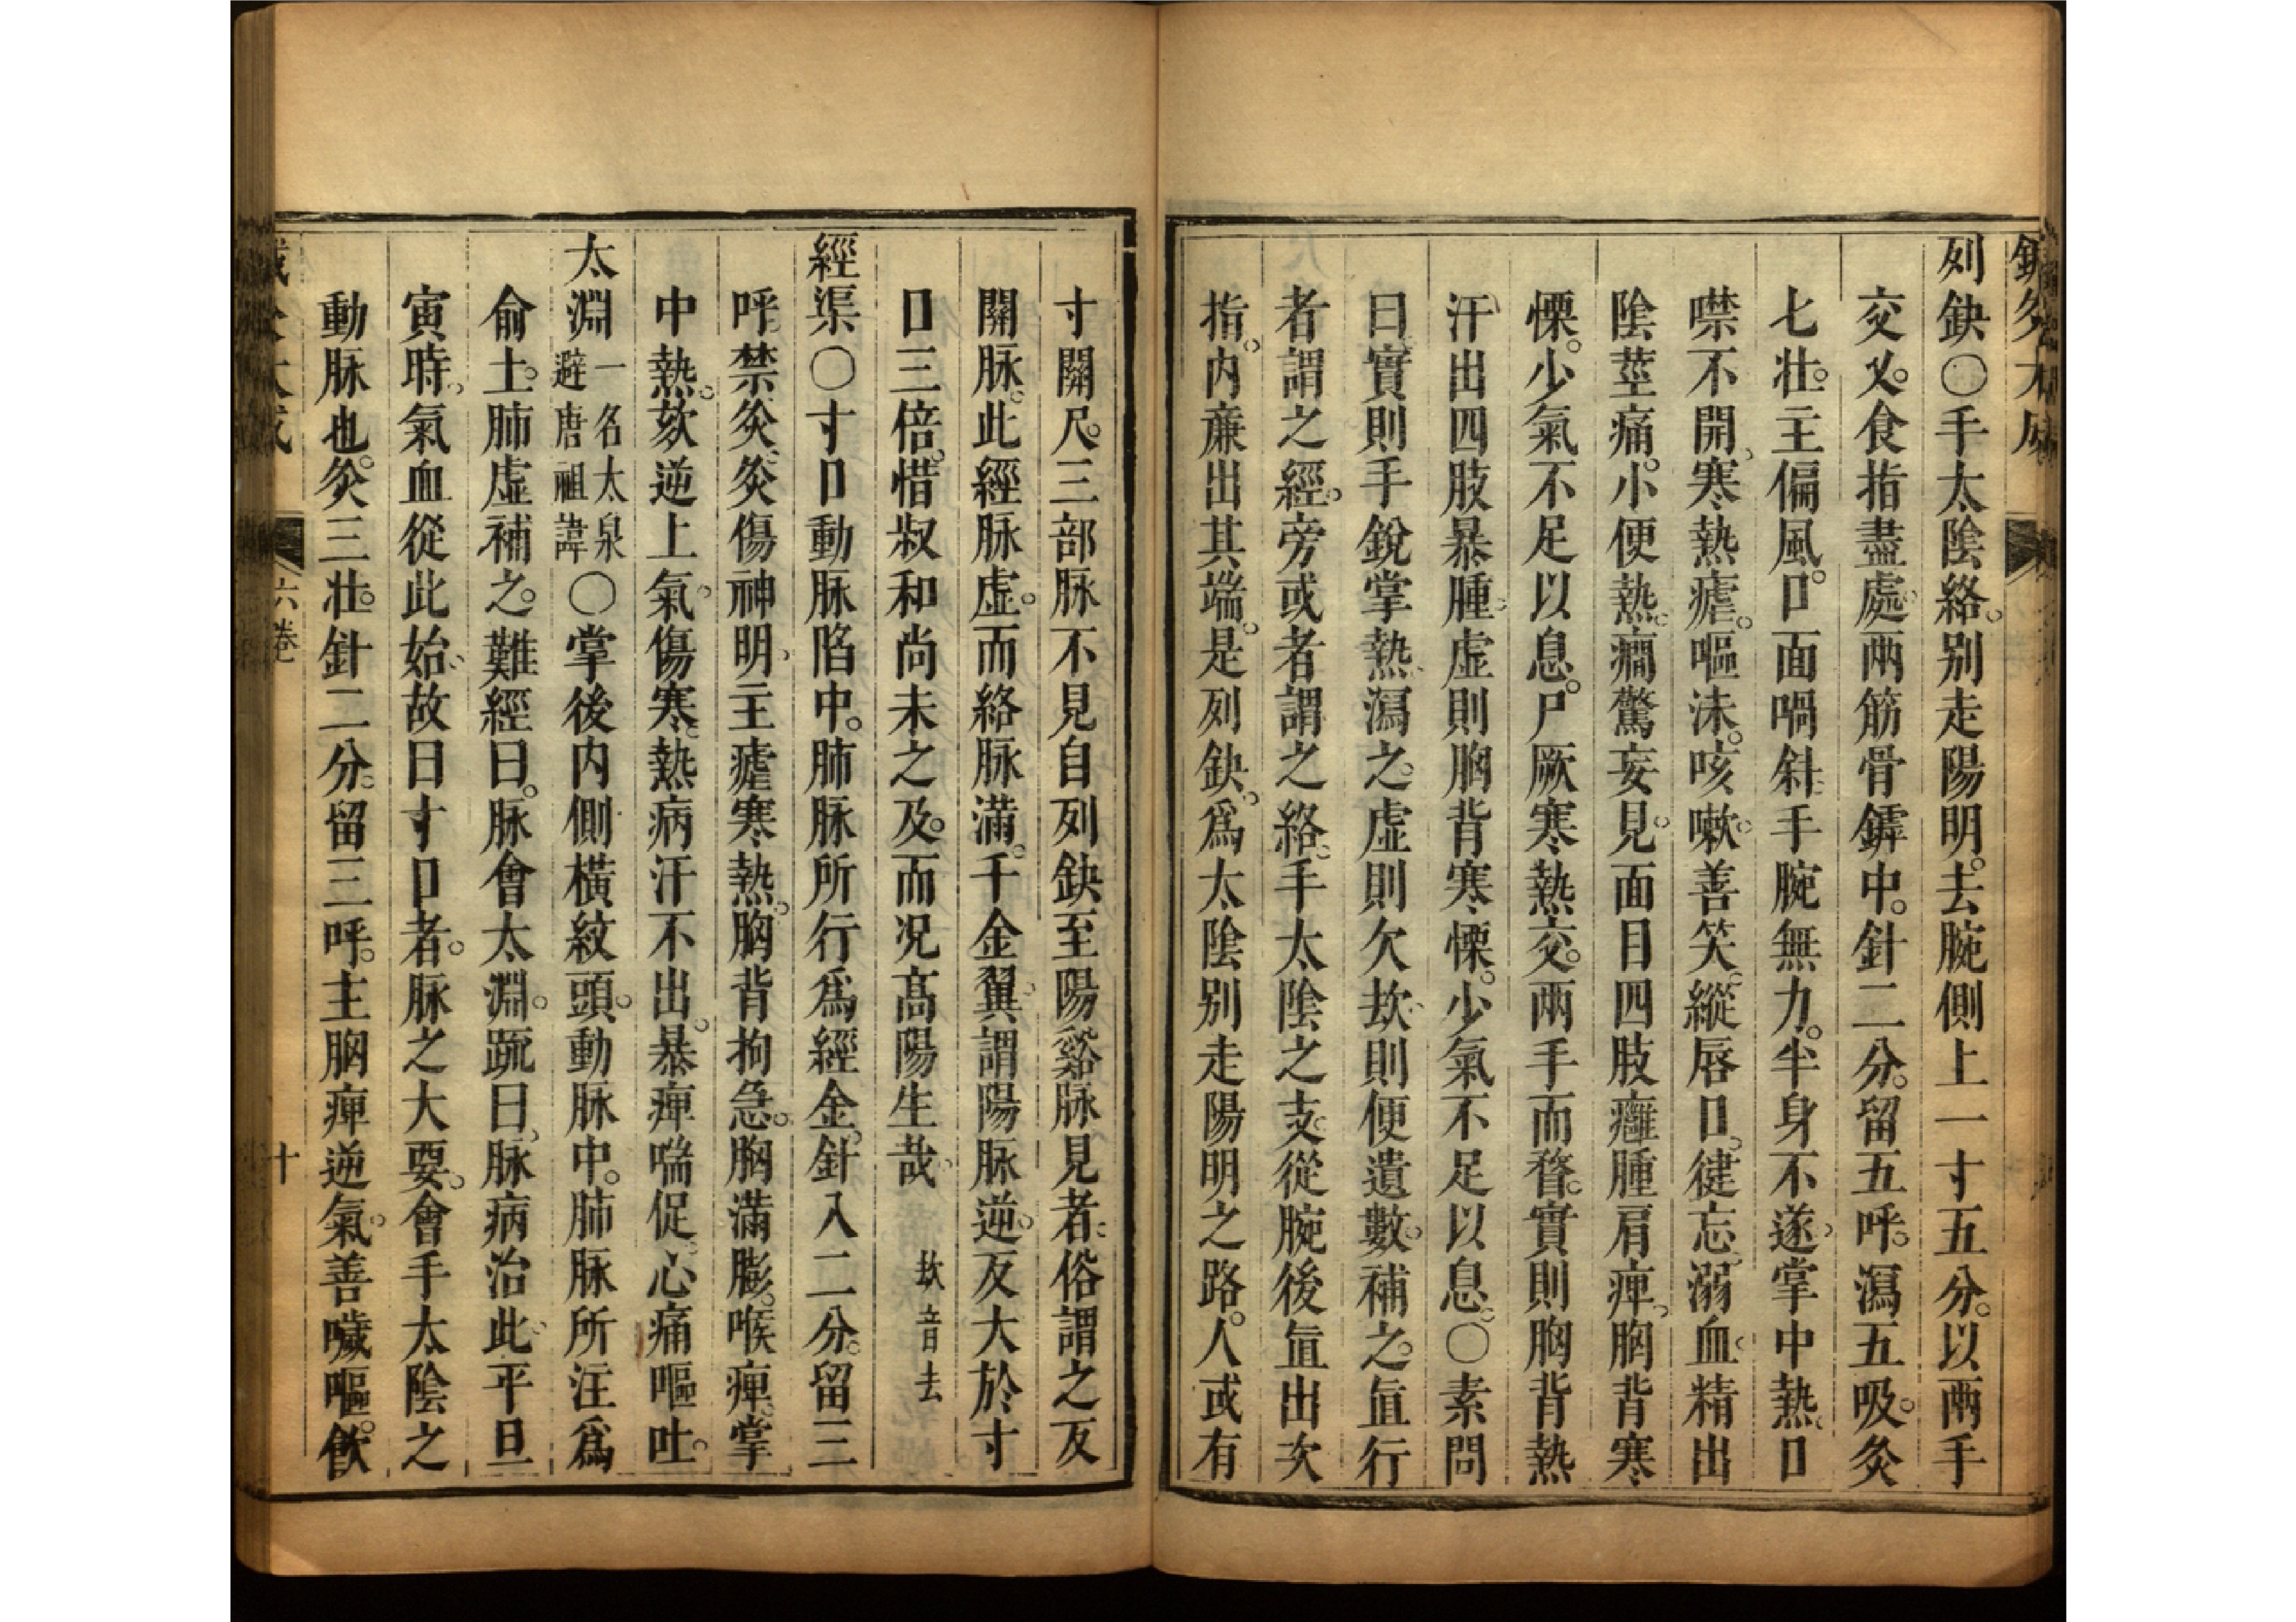 列缺〇手太陰絡。別走陽明。去腕側上一寸五分。以兩手
交叉。食指盡處。兩筋骨罅中。針二分。留五呼。瀉五吸。灸
七壯。主偏風。口面喎斜。手腕無力。半身不遂。掌中熱。口
噤不開、寒熱瘧。嘔沫。咳嗽。善笑。縱唇口。健忘。溺血。精出
陰莖痛。小便熱。癎驚妄見。面目四肢癰腫。肩痺、胸背寒
慄。少氣不足以息。尸厥寒熱。交兩手而瞀。實則胸背熱
汗出四肢暴腫。虛則胸背寒慄。少氣不足以息。〇素問
曰。實則手銳掌熱。瀉之。虛則欠㰦、則便遺數。補之。直行
者謂之經。旁或者謂之絡。手太陰之支。從腕後直出次
指。內廉出其端。是列缺。爲太陰別走陽明之路。人或有
寸關尺。三部脉不見自列缺至陽谿脉見者。俗謂之反
關脉。此經脉虛。而絡脉滿。千金翼、謂陽脉逆。反大於寸
口三倍。惜叔和尚未之及。而况高陽生哉。㰦音去
經渠〇寸口動脉陷中。肺脉所行爲經金。針入二分。留三
呼。禁灸。灸傷神明、主瘧寒熱。胸背拘急。胸滿膨。喉痺。掌
中熱。欬逆上氣。傷寒。熱病汗不出。暴痺喘促。心痛嘔吐。
太淵一名太泉避唐祖諱〇掌後內側橫紋頭。動脉中。肺脉所注爲
俞土。肺虛補之。難經曰。脉會太淵。疏曰、脉病治此、平旦
寅時、氣血從此始、故曰寸口者。脉之大要。會手太陰之
動脉也。灸三壯。針二分。留三呼。主胸痺逆氣。善噦嘔。飲
六卷
十